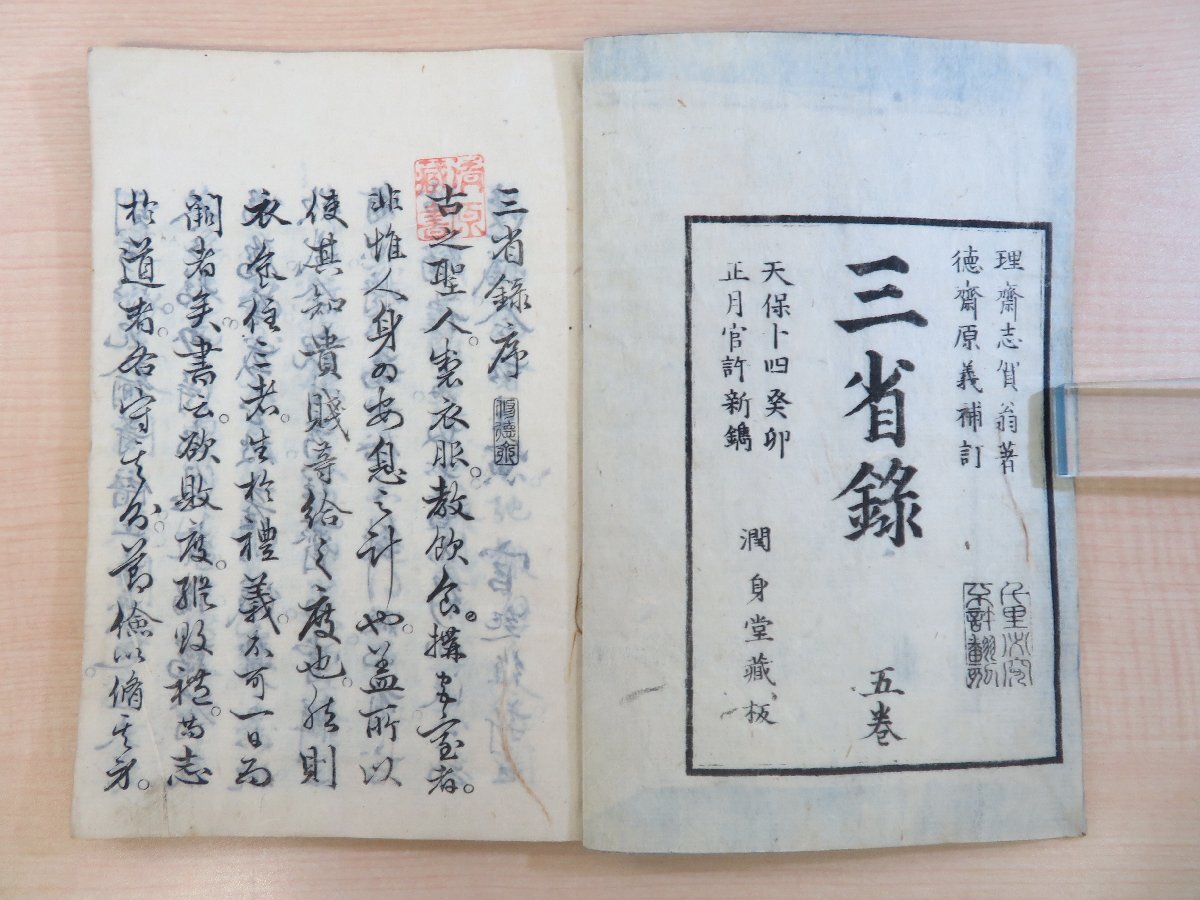 理齋志賀翁著
徳齋原義補訂
三省錄
五巻
天保十四癸卯
正月官許新鐫
潤身堂藏板
三省錄序
古之聖人。製衣服。教飲食。搆家室者。
非惟人身為安息之計也。蓋所以
使其知貴賤等給之度也。然則
衣食住三者。生於禮義。不可一日而
闕者矣。書云。欲敗度。縱敗禮。苟志
於道者。各守其分。節儉以脩其身。